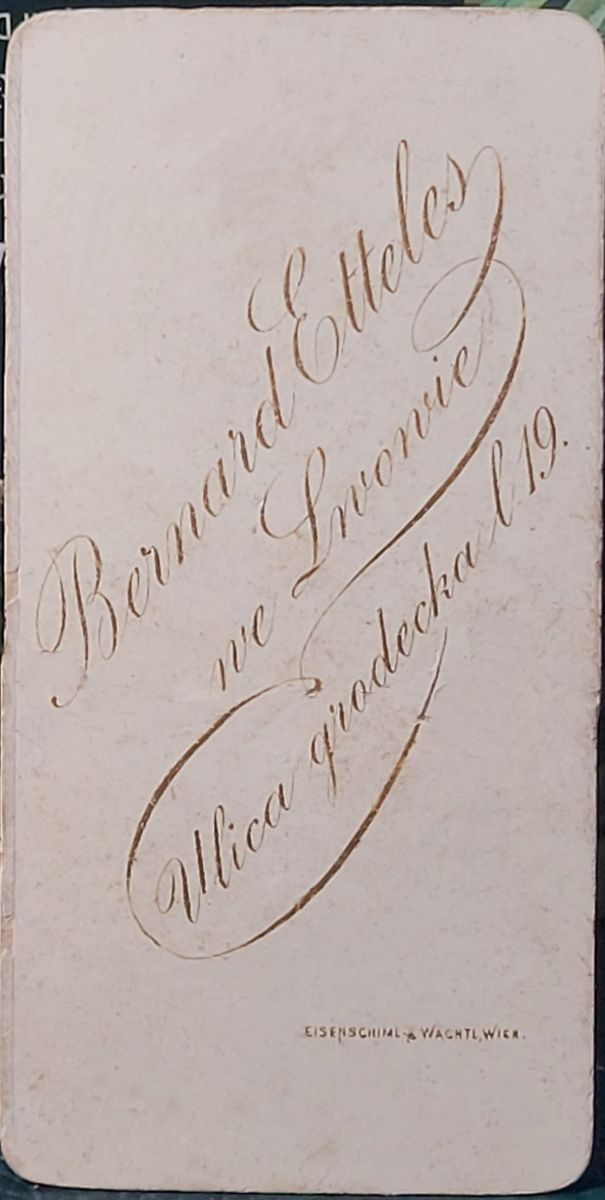 Bernard Etteles
we Lwowie
Ulica grodecka l 19.
EISENSCHIML & WACHTL, WIEN.